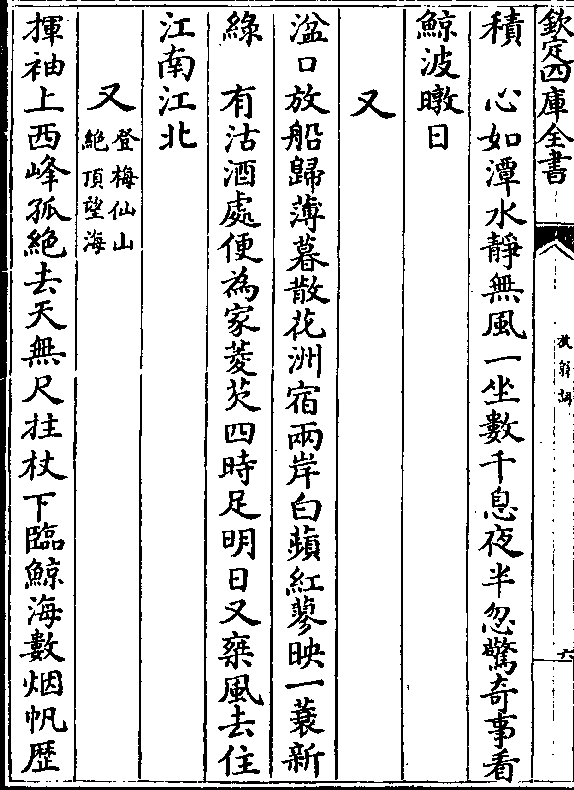 欽定四庫全書
放翁詞
六
積　心如潭水靜無風一坐數千息夜半忽驚奇事看
鯨波暾日
又
湓口放船歸薄暮散花洲宿兩岸白蘋紅蓼映一蓑新
綠　有沽酒處便為家菱芡四時足明日又椉風去住
江南江北
又
登梅仙山
絶頂望海
揮袖上西峰孤絶去天無尺拄杖下臨鯨海數烟帆歴